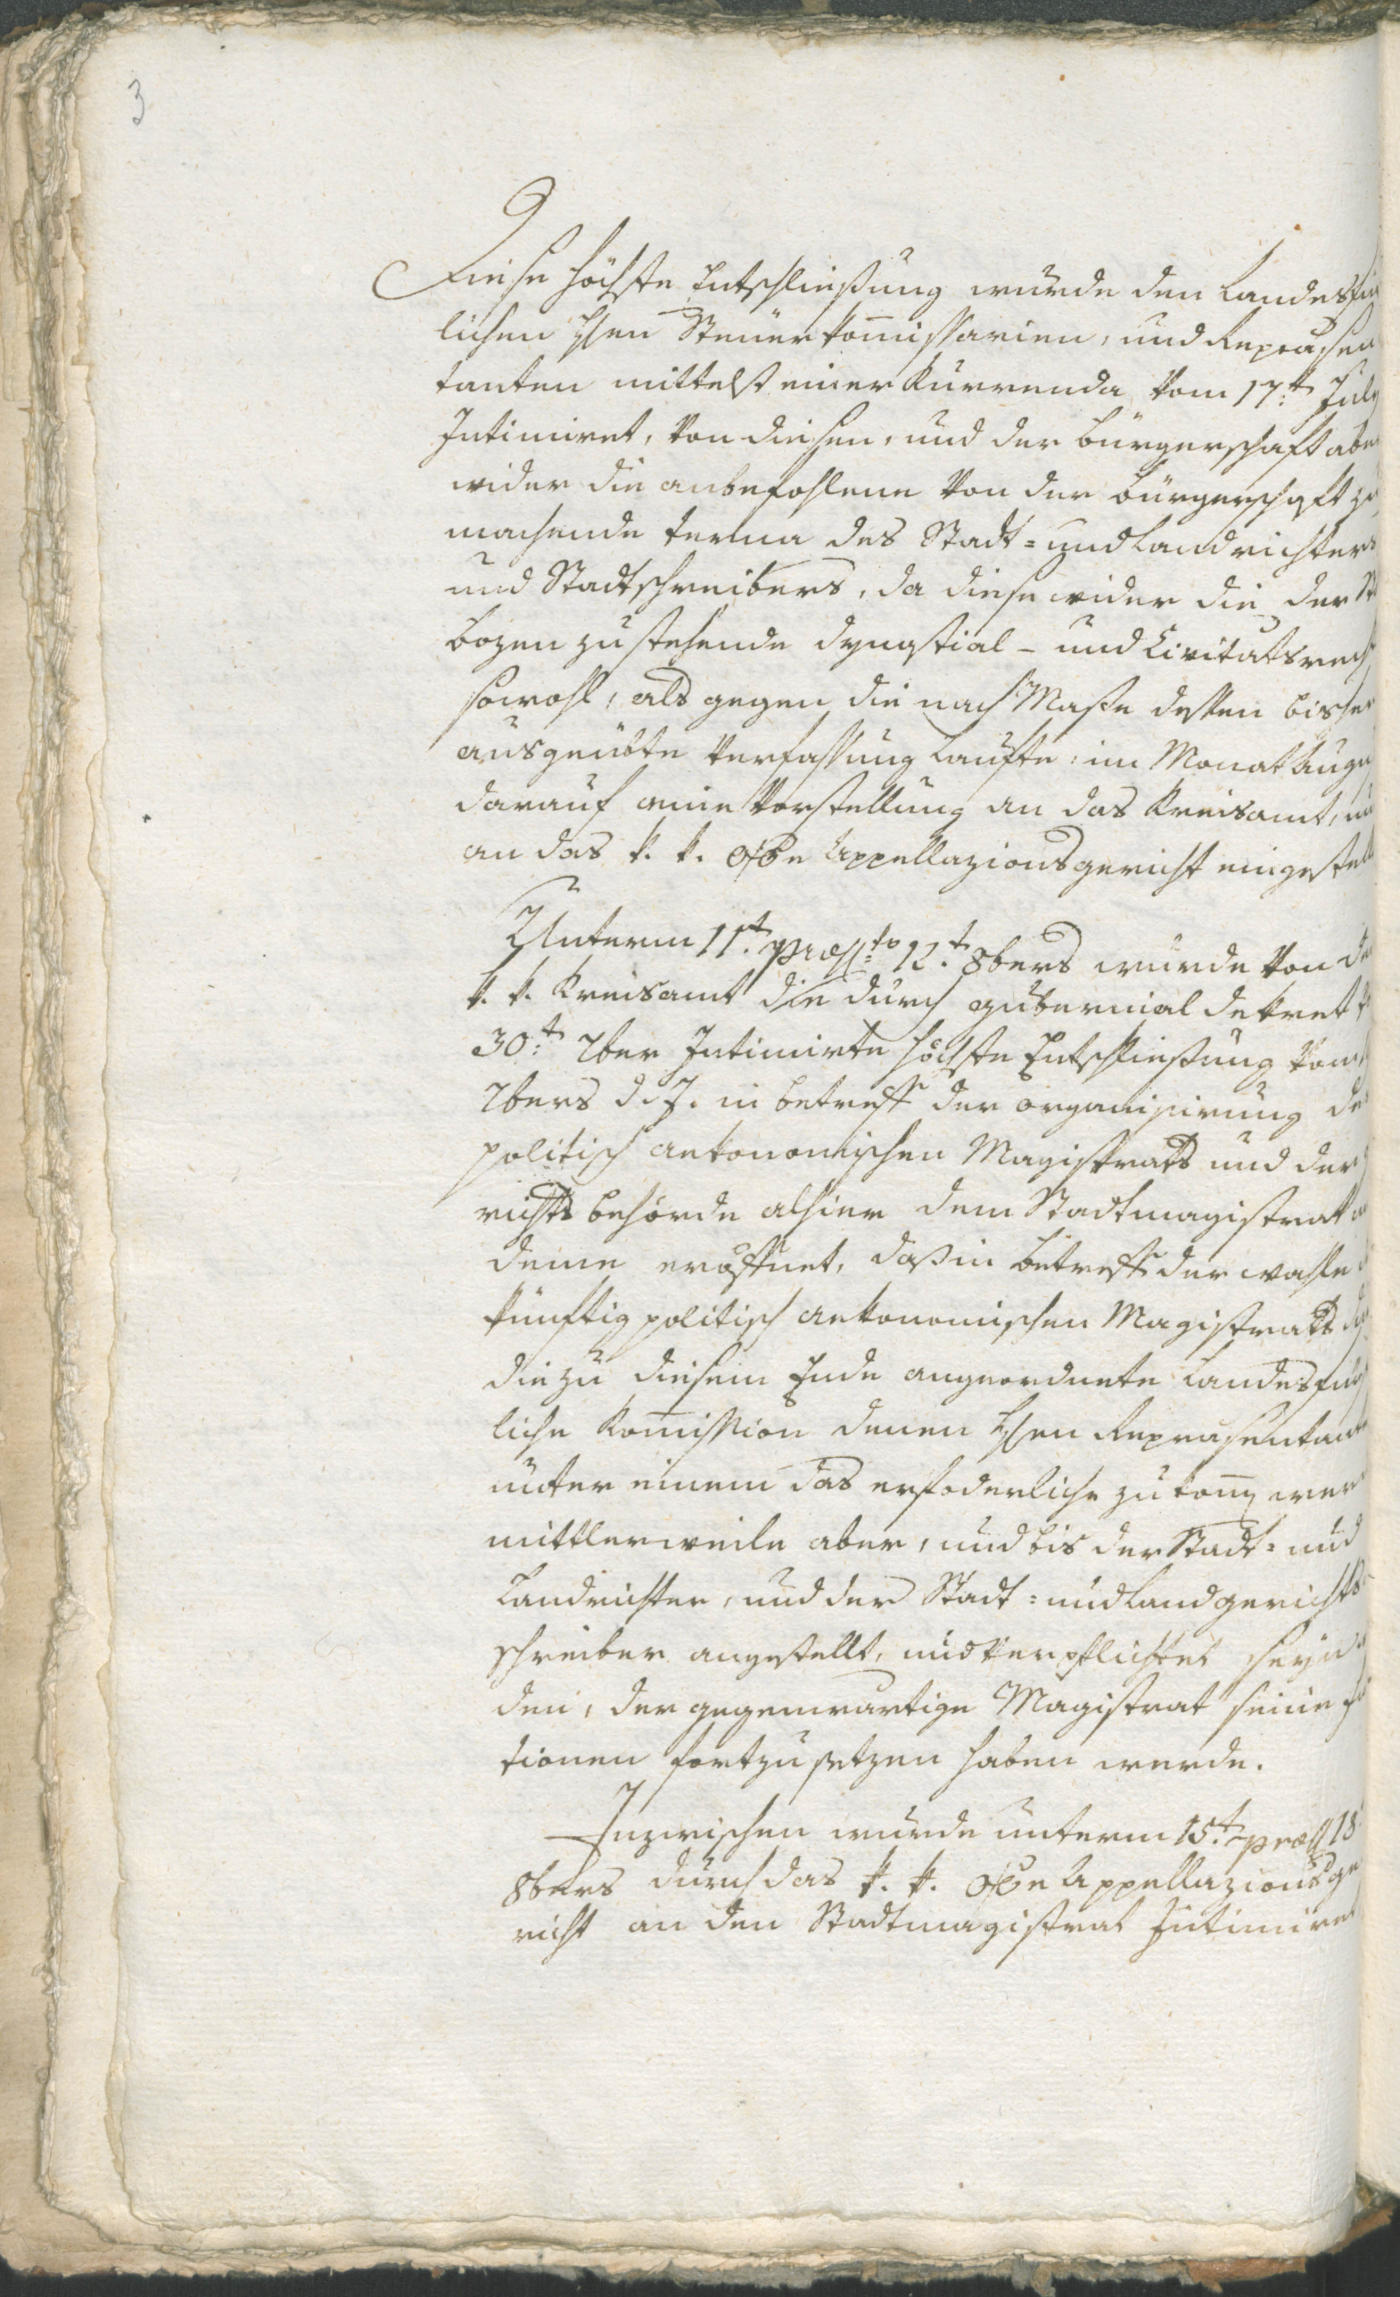 3
Diese höchste Entschliessung wurde den Landesfürst
lichen Hℓen Steuerkom̅issarien, und Repräsen
tanten mittelst einer Kurrenda vom 17.t July
Intimiret, von diesen, und der Bürgerschaft aber
wider die anbefohlene von der Bürgerschaft zu
machende terna des Stadt= und Landrichters
und Stadtschreibers, da diese wider die der St
Bozen zustehende dynastial- und Civitätsrech
sowohl, als gegen die nach Masse dessen bisher
ausgeübte Verfassung laufte, im Monat Augu
darauf eine Vorstellung an das Kreisamt, un
an das k. k. oöe Appellazionsgericht eingestell
Unterm 11.t Præs:to 12.t 8bers wurde von de
k. k. Kreisamt die durch gubernial dekret v
30.t 7ber Intimirte höchste Entschliessung vom
7bers d. J. in betreff der organisirung des
politisch oekonomischen Magistrats und der
richts behörde alhier dem Stadtmagistrat
deme eröffnet, daß in betreff der wahle d
künftig politisch oekonomischen Magistrats
die zu diesem Ende angeordnete Landesfürst
liche Kom̅ission denen Hℓen Repräsentant
unter einem das erfoderliche zukom̅en wer
mittlerweile aber, und bis der Stadt= und
Landrichter, und der Stadt= und Landgerichts
schreiber angestellt, und verpflichtet seyn
den, der gegenwärtige Magistrat seine f
tionen fortzusetzen haben werde.
Inzwischen wurde unterm 15.t præs 18
8bers durch das k. k. oöe Appellazionsge
richt an den Stadtmagistrat Intimiret